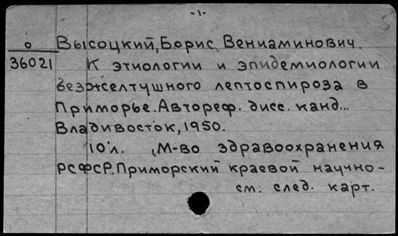 -1-
о Высоцкий, Борис Вениаминович.
36021 К этиологии и эпидемиологии
безжелтушного лептоспироза в
Приморье. Автореф. дисс. канд...
Владивосток, 1950.
10 л. , М-во здравоохранения
РСФСР. Приморский краевой научно-
см. след. карт.